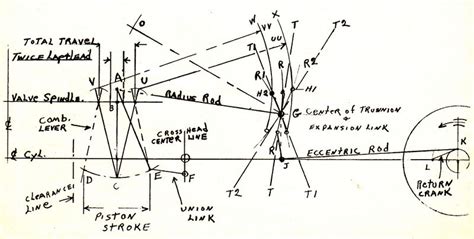 TOTAL TRAVEL
TWICE LAP & LEAD
V
A
U
B
O
W
X
VV
UU
T
T2
T1
R
R1
R2
H2
H1
Valve Spindle
RADIUS ROD
G
CENTER OF TRUNNION &
EXPANSION LINK
COMB.
LEVER
CROSSHEAD
CENTER LINE
¢ CYL.
ECCENTRIC ROD
K
J
L
D
C
E
F
CLEARANCE
LINE
PISTON
STROKE
UNION
LINK
T2
T
T1
RETURN
CRANK